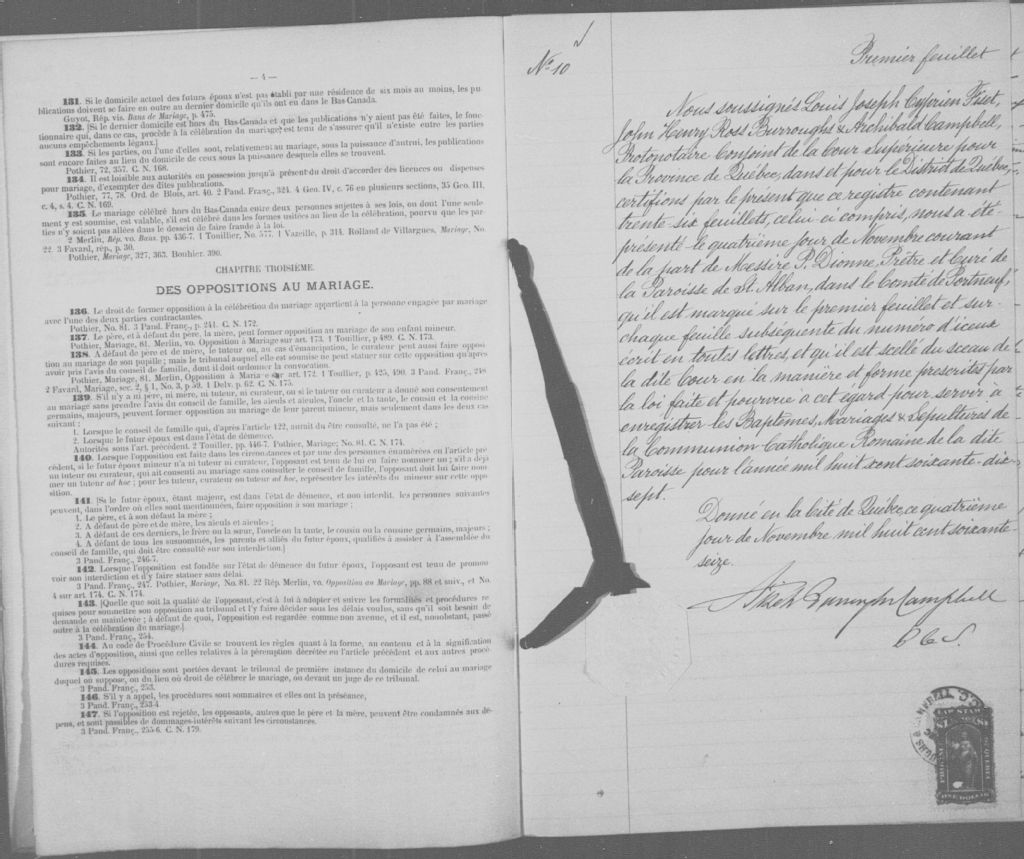 — 4 —
131. Si le domicile actuel des futurs époux n'est pas établi par une résidence de six mois au moins, les pu
blications doivent se faire en outre au dernier domicile qu'ils ont eu dans le Bas-Canada.
Guyot, Rép. vis. Bans de Mariage, p. 475.
132. [Si le dernier domicile est hors du Bas-Canada et que les publications n'y aient pas été faites, le fonc-
tionnaire qui, dans ce cas, procède à la célébration du mariage, est tenu de s'assurer qu'il n'existe entre les parties
aucuns empêchements légaux.]
133. Si les parties, ou l'une d'elles sont, relativement au mariage, sous la puissance d'autrui, les publications
sont encore faites au lieu du domicile de ceux sous la puissance desquels elles se trouvent.
Pothier, 72, 357. C. N. 168.
134. Il est loisible aux autorités en possession jusqu'à présent du droit d'accorder des licences ou dispenses
pour mariage, d'exempter des dites publications.
Pothier, 77, 78. Ord. de Blois, art. 40. 2 Pand. Franç., 324. 4 Geo. IV, c. 76 en plusieurs sections, 35 Geo. III,
c. 4, s. 4. C. N. 169.
135. Le mariage célébré hors du Bas-Canada entre deux personnes sujettes à ses lois, ou dont l'une seule
ment y est soumise, est valable, s'il est célébré dans les formes usitées au lieu de la célébration, pourvu que les par-
ties n'y soient pas allées dans le dessein de faire fraude à la loi.
2 Merlin, Rép. vo. Bans. pp. 436-7. 1 Touillier, No. 577. 1 Vazeille, p. 314. Rolland de Villargues, Mariage, No.
22. 3 Favard, rép., p. 30.
Pothier, Mariage, 327, 363. Bouhier. 390.
CHAPITRE TROISIÈME.
DES OPPOSITIONS AU MARIAGE.
136. Le droit de former opposition à la célébration du mariage appartient à la personne engagée par mariage
avec l'une des deux parties contractantes.
Pothier, No. 81. 3 Pand. Franç., p. 241. C. N. 172.
137. Le père, et à défaut du père, la mère, peut former opposition au mariage de son enfant mineur.
Pothier, Mariage, 81. Merlin, vo. Opposition à Mariage sur art. 173. 1 Touillier, p 489. C. N. 173.
138. A défaut de père et de mère, le tuteur ou, au cas d'émancipation, le curateur peut aussi faire opposi
tion au mariage de son pupille; mais le tribunal auquel elle est soumise ne peut statuer sur cette opposition qu'après
avoir pris l'avis du conseil de famille, dont il doit ordonner la convocation.
Pothier, Mariage, 81. Merlin, Opposition à Mariage sur art. 172. 1 Touillier, p. 425, 490. 3 Pand. Franç., 248
2 Favard, Mariage, sec. 2, § 1, No. 3, p 59. 1 Delv. p. 62. C. N. 175.
139. S'il n'y a ni père, ni mère, ni tuteur, ni curateur, ou si le tuteur ou curateur a donné son consentement
au mariage sans prendre l'avis du conseil de famille, les aïeuls et aïeules, l'oncle et la tante, le cousin et la cousine
germains, majeurs, peuvent former opposition au mariage de leur parent mineur, mais seulement dans les deux cas
suivant :
1. Lorsque le conseil de famille qui, d'après l'article 122, aurait du être consulté, ne l'a pas été ;
2. Lorsque le futur époux est dans l'état de démence.
Autorités sous l'art. précédent. 2 Touiller, pp. 446-7. Pothier, Mariage; No. 81. C. N. 174.
140. Lorsque l'opposition est faite dans les circonstances et par une des personnes énumérées en l'article pré
cédent, si le futur époux mineur n'a ni tuteur ni curateur, l'opposant est tenu de lui en faire nommer un ; s'il a déjà
un tuteur ou curateur, qui ait consenti au mariage sans consulter le conseil de famille, l'opposant doit lui faire nom-
mer un tuteur ad hoc ; pour les tuteur, curateur ou tuteur ad hoc, représenter les intérêts du mineur sur cette oppo-
sition.
141. [Sa le futur époux, étant majeur, est dans l'état de démence, et non interdit, les personnes suivantes
peuvent, dans l'ordre où elles sont mentionnées, faire opposition à son mariage :
1. Le père, et à son défaut la mère ;
2. A défaut de père et de mère, les aïeuls et aïeules ;
3. A défaut de ces derniers, le frère ou la sœur, l'oncle ou la tante, le cousin ou la cousine germains, majeurs ;
4. A défaut de tous les susnommés, les parents et alliés du futur époux, qualifiés à assister à l'assemblée du
conseil de famille, qui doit être consulté sur son interdiction.]
3 Pand. Franç., 246-7.
142. Lorsque l'opposition est fondée sur l'état de démence du futur époux, l'opposant est tenu de promou
voir son interdiction et d'y faire statuer sans délai.
3 Pand. Franç., 247. Pothier, Mariage, No. 81. 22 Rép. Merlin, vo. Opposition au Mariage, pp. 88 et suiv., et No.
4 sur art 174. C. N. 174.
143. [Quelle que soit la qualité de l'opposant, c'est à lui à adopter et suivre les formalités et procédures re
quises pour soumettre son opposition au tribunal et l'y faire décider sous les délais voulus, sans qu'il soit besoin de
demande en mainlevée ; à défaut de quoi, l'opposition est regardée comme non avenue, et il est, nonobstant, passé
outre à la célébration du mariage.]
3 Pand. Franç., 254.
144. Au code de Procédure Civile se trouvent les règles quant à la forme, au contenu et à la signification
des actes d'opposition, ainsi que celles relatives à la péremption décrétée en l'article précédent et aux autres procé
dures requises.
145. Les oppositions sont portées devant le tribunal de première instance du domicile de celui au mariage
duquel on suppose, ou du lieu où droit de célébrer le mariage, ou devant un juge de ce tribunal.
3 Pand. Franç., 253.
146. S'il y a appel, les procédures sont sommaires et elles ont la préséance,
3 Pand. Franç., 253-4
147. Si l'opposition est rejetée, les opposants, autres que le père et la mère, peuvent être condamnés aux dé
pens, et sont passibles de dommages-intérêts suivant les circonstances.
3 Pand. Franç., 255-6. C. N. 179.
No 10
Premier feuillet
Nous soussignés Louis Joseph Cyprien Fiset,
John Henry Ross Burroughs & Archibald Campbell,
Protonotaire Conjoint de la Cour Supérieure pour
la Province de Québec, dans et pour le District de Québec,
certifions par le présent que ce registre contenant
trente-six feuillets, celui-ci compris, nous a été
présenté le quatrième jour de Novembre courant
de la part de Messire P. Dionne, Prêtre et Curé de
la Paroisse de St. Alban, dans le Comté de Portneuf,
qu'il est marqué sur le premier feuillet et sur
chaque feuille subséquente du numéro d'iceux
écrit en toutes lettres, et qu'il est scellé du sceau de
la dite Cour en la manière et forme prescrites par
la loi faite et pourvue à cet égard pour servir à
enregistrer les Baptêmes, Mariages & Sépultures de
la Communion Catholique Romaine de la dite
Paroisse pour l'année mil huit cent soixante-dix
sept.
Donné en la Cité de Québec, ce quatrième
jour de Novembre mil huit cent soixante-
seize.
Campbell
P C S.
LAW STAMP
ONE DOLLAR